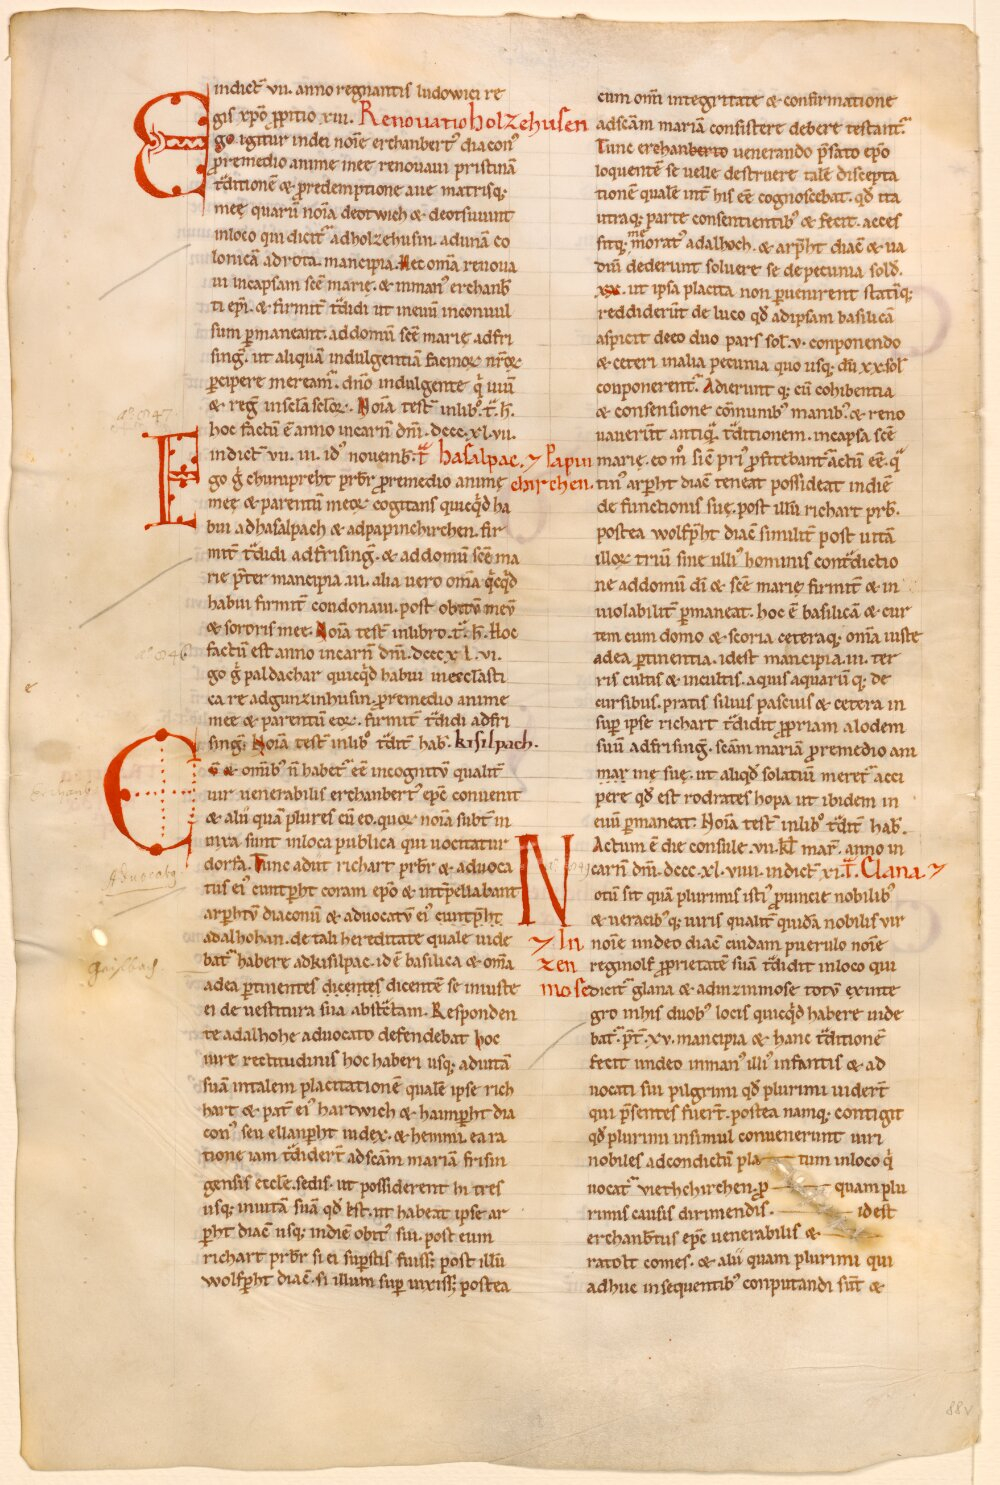 indict̄ vii. anno regnantis ludowici re
gis xpō ꝓpitio xiii. Renouatio holzehusen
Ego igitur in dei noīe erchanbert' diacon'
pro remedio anime mee renouaui pristinā
tᵃditionē & predemptione aue matrisq;
meę quarū noīa deotwich & deotsuuint
in loco qui dicit᷑ ad holzehusin. ad unā co
lonicā ad rota. mancipia. Hec omīa renoua
ui in capsam scē marię. & in man' erchanb̄
ti ep̄i. & firmit̄ tᵃdidi ut in euū inconuul
sum ꝑmaneant. ad domū scē marię ad fri
sing̅. ut aliquā indulgentiā facinoꝝ nr̄oꝝ
ꝑcipere meream᷑. dnō indulgente q̇ uiuit
& reḡ in sclā scloꝝ. Noīa test̄ in lib'. t̄. h̄.
hoc factū ē anno incarn̄ dnī. dccc. xl. vii.
indict̄ vii. iii. id' novemb̄. t̄ hasalpac. ⁊ Papin
Ego ḡ chunipreht pr̄br pro remedio anime chirchen.
meę & parentū meoꝝ cogitans quicq̇d ha
bui ad hasalpach & ad papinchirchen. fir
mit̄ tᵃdidi ad frising̅. & ad domū scē ma
rię p̄ter mancipia .iii. alia uero omīa q̇cq̇d
habui firmit̄ condonaui. post obitū meū
& sororis mee. Noīa test̄ in libro. t̄. h̄. Hoc
factū est anno incarn̄ dnī. dccc xl. vi.
go ḡ paldachar quicq̇d habui in ecclasti
ca re ad gunzinhusin. pro remedio anime
mee & parentū eoꝝ. firmit̄ tᵃdidi ad fri
sing̅. Noīa test̄ in lib' tᵃdit̄ hab̄. kisilpach.
Cū & omīb' ñ habet᷑ eē incognitū qualit̄
uir venerabilis erchanbert' ep̄c conuenit
& alii quā plures cū eo. quoꝝ noīa subt̄ in
nixa sunt in loca publica qui uocitatur
dorfa. Tunc adiit richart pr̄br & aduoca
tus ei' cuntp̄ht coram ep̄o & int̄pellabant
arp̄htū diaconū & aduocatū ei' cuntp̄ht
adalhohan. de tali hereditate quale uide
bat᷑ habere ad kisilpac. id ē basilica & omīa
ad ea ꝑtinentes dicentes dicentē se iniuste
ei de uestitura sua abst̄ctam. Responden
te adalhohe aduocato defendebat hoc
iure rectitudinis hoc haberi usq; ad uitā
suā in talem placitationē quale ipse rich
hart & pat̄ ei' hartwich & hamp̄ht dia
con' seu ellanp̄ht iudex. & hemmi. ea ra
tione iam tᵃdidert̄ ad scām mariā frisin
gensis eccłe. sedis. ut possiderent hi tres
usq; in uitā suā qd̄ ēst. ut habeat ipse ar
p̄ht diac̄ usq; in diē obit' sui. post eum
richart pr̄br si ei sup̄stis fuiss&. post illū
wolfp̄ht diac̄. si illum sup̄ uixiss& postea
cum omī integritate & confirmatione
ad scām mariā consistere debere testant᷑.
Tunc erchanberto uenerando p̄fato ep̄o
loquente se uelle destruere tale discepta
tionē quale int̄ his eē cognoscebat. qd̄ ita
utraq; parte consentientib' & fecit. acces
sitq; memorat' adalhoch. & arp̄ht diac̄ & ua
diū dederunt soluere se de pecunia solđ.
xx. ut ipsa placita non ꝑuenirent statīq;
reddiderūt de luco qd̄ ad ipsam basilicā
aspicit deco duo pars soł. v. conponendo
& ceteri in alia pecunia quo usq; dū xx soł
conponerent᷑. Adierunt q; cū cohibentia
& consensione cōmunib' manib'. & reno
uauerūt antiq̄. tᵃditionem. in capsa scē
marię. eo m̊ sic̄ pri' profitebant᷑ actū eē. q̄
tin' arp̄ht diac̄ teneat possideat in diē
de functionis suę. post illū richart pr̄b.
postea wolfp̄ht diac̄ similit̄ post uitā
illoꝝ triū sine ulli' hominis contᵃdictio
ne ad domū dī & scē marię firmit̄ & in
uiolabilit̄ ꝑmaneat. hoc ē basilicā & cur
tem cum domo & scoria ceteraq; omīa iuste
ad ea ꝑtinentia. idest mancipia .iii. ter
ris cultis & incultis. aquis aquarū q; de
cursibus. pratis siluis pascuis & cetera in
sup̄ ipse richart tᵃdidit ꝓpriam alodem
suū ad frising̅. scām mariā pro remedio ani
mar̄ nię suę. ut aliqd̄ solatiū meret᷑ acci
pere qd̄ est rodrates hopa ut ibidem in
euū ꝑmaneat. Noīa test̄ in lib' tᵃdit̄ hab̄.
Actum ē die consule. vii. kł mar̄. anno in
carn̄ dnī. dccc. xl. viiii. indict̄ xi. t̄. Clana. ⁊
Notū sit quā plurimis isti' ꝓuincie nobilib'
& ueracib' q; uiris qualit̄ quidā nobilis vir
⁊ In noīe undeo diac̄ cuidam puerulo noīe
zen reginolf ꝓprietatē suā tᵃdidit in loco qui
mose dicit᷑ glana & ad inzinmose totū ex inte
gro in his duob' locis quicq̇d habere uide
bat᷑. p̄t̄. xv. mancipia & hanc tᵃditionē
fecit undeo in man' illi' infantis & ad
uocati sui pilgrimi qd̄ plurimi uidert̄
qui p̄sentes fuert̄. postea namq; contigit
qd̄ plurimi in simul conuenerunt uiri
nobiles ad condictū pla tum in loco q̇
uocat᷑ viethchirchen. p quam plu
rimis causis dirimendis. idest
erchanb̄tus ep̄c uenerabilis &
ratolt comes. & alii quam plurimi qui
adhuc in sequentib' conputandi sūt &
aᵒ 847.
aᵒ 846
Advocatq
Geislbach
88v